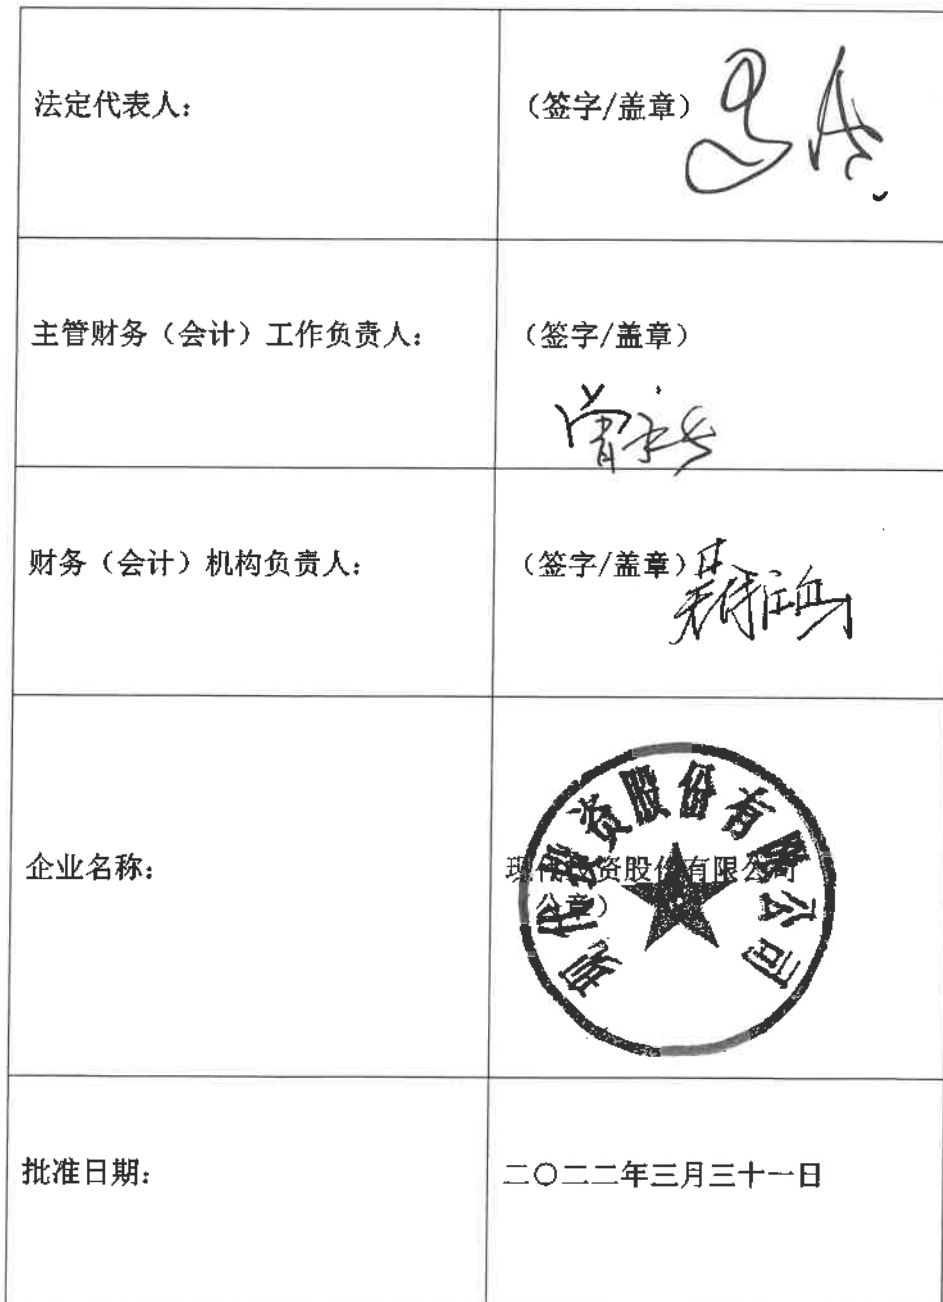 法定代表人：
（签字/盖章）
主管财务（会计）工作负责人：
（签字/盖章）
曾永长
财务（会计）机构负责人：
（签字/盖章）
企业名称：
现代投资股份有限公司
（公章）
现代投资股份有限公司
批准日期：
二〇二二年三月三十一日